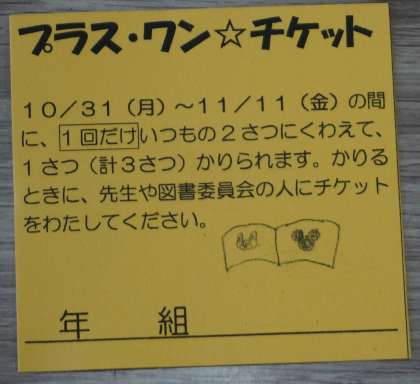 プラス・ワン☆チケット
10／31（月）～11／11（金）の間
に、1回だけいつもの2さつにくわえて、
1さつ（計3さつ）かりられます。かりる
ときに、先生や図書委員会の人にチケット
をわたしてください。
年　　組